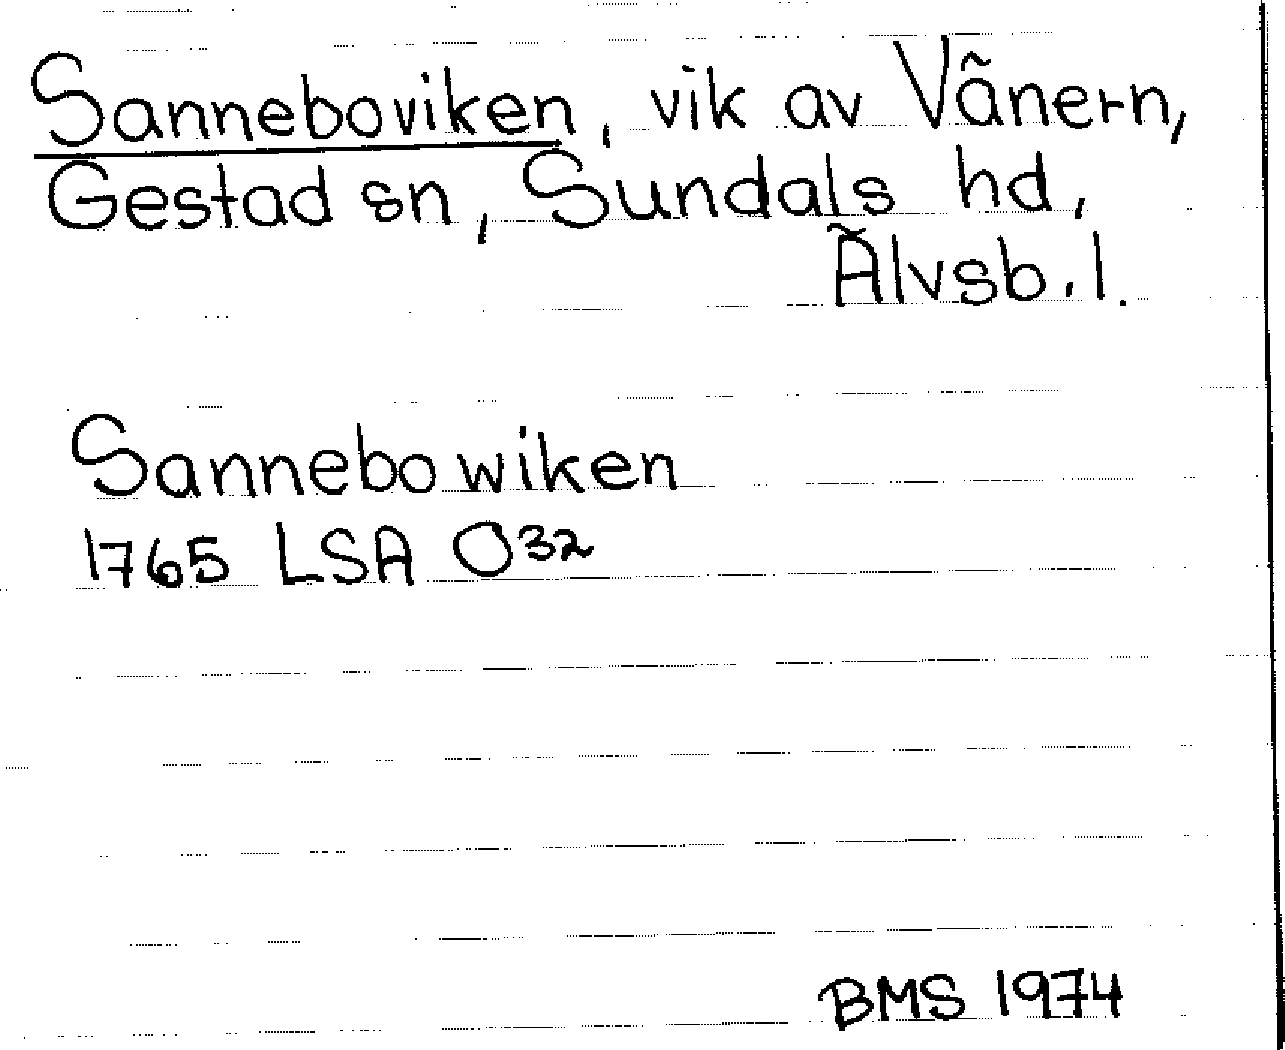 Sanneboviken, vik av Vänern,
Gestad sn, Sundals hd,
Älvsb. l.
Sannebowiken
1765 LSA O32
BMS 1974